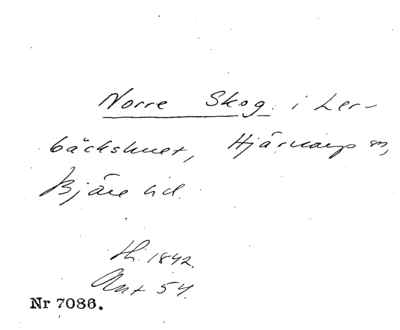 Norre Skog i Ler-
bäckshult, Hjärnarp sn,
Bjäre hd.
th. 1842.
Ant 54.
Nr 7086.